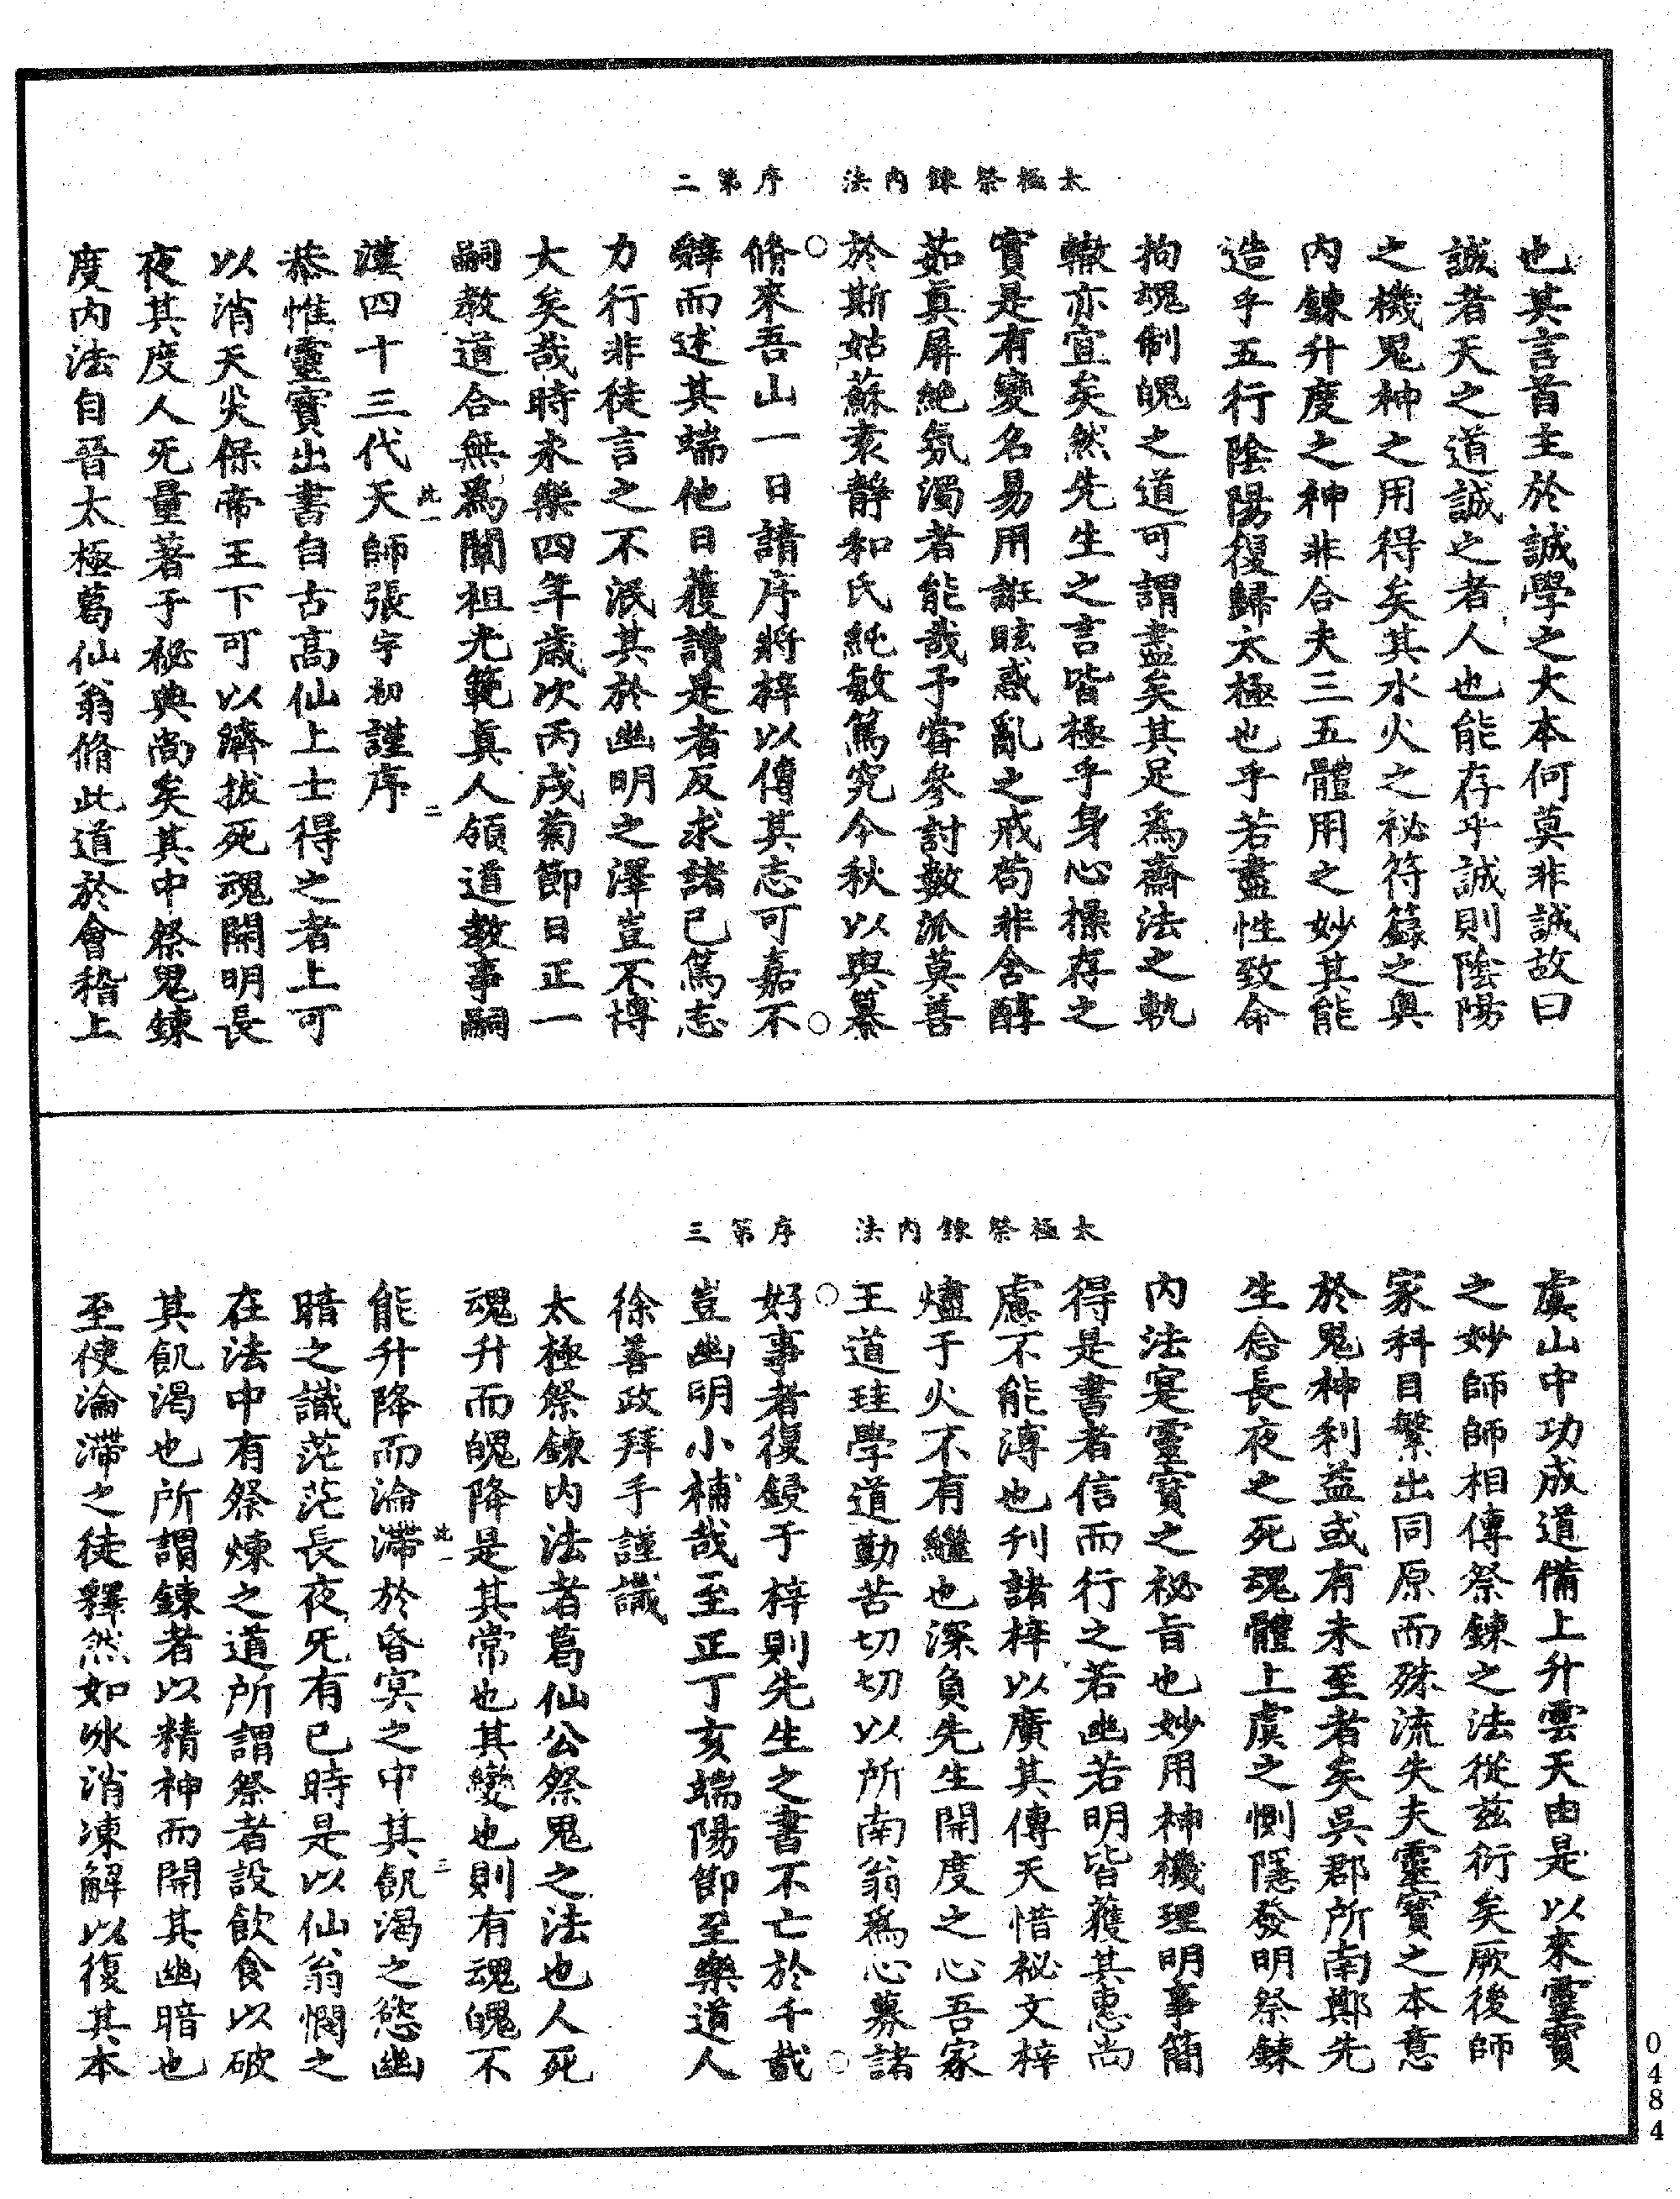 太極祭鍊內法　序第二
也其言首主於誠學之大本何莫非誠故曰
誠者天之道誠之者人也能存乎誠則陰陽
之機鬼神之用得矣其水火之祕符籙之奧
內鍊升度之神非合夫三五體用之妙其能
造乎五行陰陽復歸太極也乎若盡性致命
拘魂制魄之道可謂盡矣其足為齋法之軌
轍亦宜矣然先生之言皆極乎身心操存之
實是有變名易用誑眩惑亂之戒苟非含醇
茹真屏絕氛濁者能哉予嘗參討數派莫善
於斯姑蘇袁靜和氏純敏篤究今秋以與纂
○脩來吾山一日請序將梓以傳其志可嘉不○
辭而述其端他日獲讀是者反求諸己篤志
力行非徒言之不泯其於幽明之澤豈不博
大矣哉時永樂四年歲次丙戌菊節日正一
嗣教道合無為闡祖光範真人領道教事嗣
此一　二
漢四十三代天師張宇初謹序
恭惟靈寶出書自古高仙上士得之者上可
以消天災保帝王下可以濟拔死魂開明長
夜其度人无量著于祕典尚矣其中祭鬼鍊
度內法自晉太極葛仙翁脩此道於會稽上
太極祭鍊內法　序第三
虞山中功成道備上升雲天由是以來靈寶
之妙師師相傳祭鍊之法從茲衍矣厥後師
家科目繁出同原而殊流失夫靈寶之本意
於鬼神利益或有未至者矣吳郡所南鄭先
生念長夜之死魂體上虞之惻隱發明祭鍊
內法寔靈寶之祕旨也妙用神機理明事簡
得是書者信而行之若幽若明皆獲其惠尚
慮不能溥也刊諸梓以廣其傳天惜祕文梓
燼于火不有繼也深負先生開度之心吾家
王道珪學道勤苦切切以所南翁為心募諸
○好事者復鋟于梓則先生之書不亡於千載○
豈幽明小補哉至正丁亥端陽節至樂道人
徐善政拜手謹識
太極祭鍊內法者葛仙公祭鬼之法也人死
魂升而魄降是其常也其變也則有魂魄不
此一　三
能升降而淪滯於昏冥之中其飢渴之慾幽
暗之識茫茫長夜旡有已時是以仙翁憫之
在法中有祭煉之道所謂祭者設飲食以破
其飢渴也所謂鍊者以精神而開其幽暗也
至使淪滯之徒釋然如冰消凍解以復其本
0484